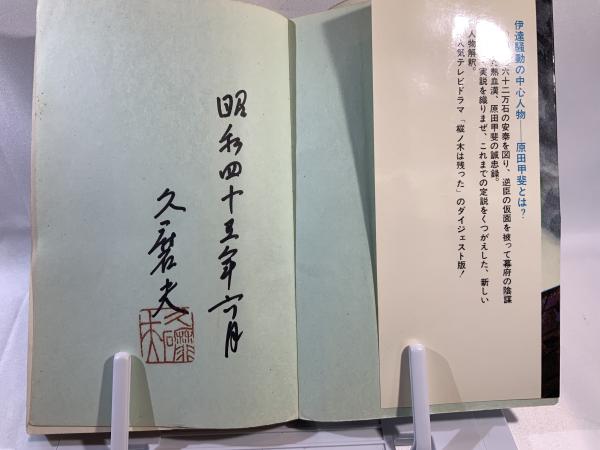 伊達騒動の中心人物――原田甲斐とは?
六十二万石の安泰を図り、逆臣の仮面を被って幕府の陰謀
熱血漢、原田甲斐の誠忠録。
実説を織りまぜ、これまでの定説をくつがえした、新しい
人物解釈。
人気テレビドラマ「樅ノ木は残った」のダイジェスト版!
昭和四十五年六月
久磨夫